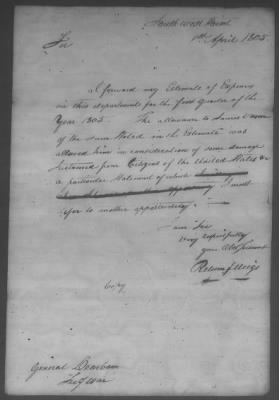 South West Point
1st April 1805
Sir
I forward my Estimate of Expences
in this department for the first Quarter of the
Year 1805. The allowance to James
of the sum Stated in the Estimate was
allowed him in consideration of some damage
sustained from Citizens of the United States &c
a particular Statement of which
I must
refer to another opportunity.
I am Sir
Very respectfully
your Obt Servant
Return J. Meigs
Copy
General Dearborn
Secy War